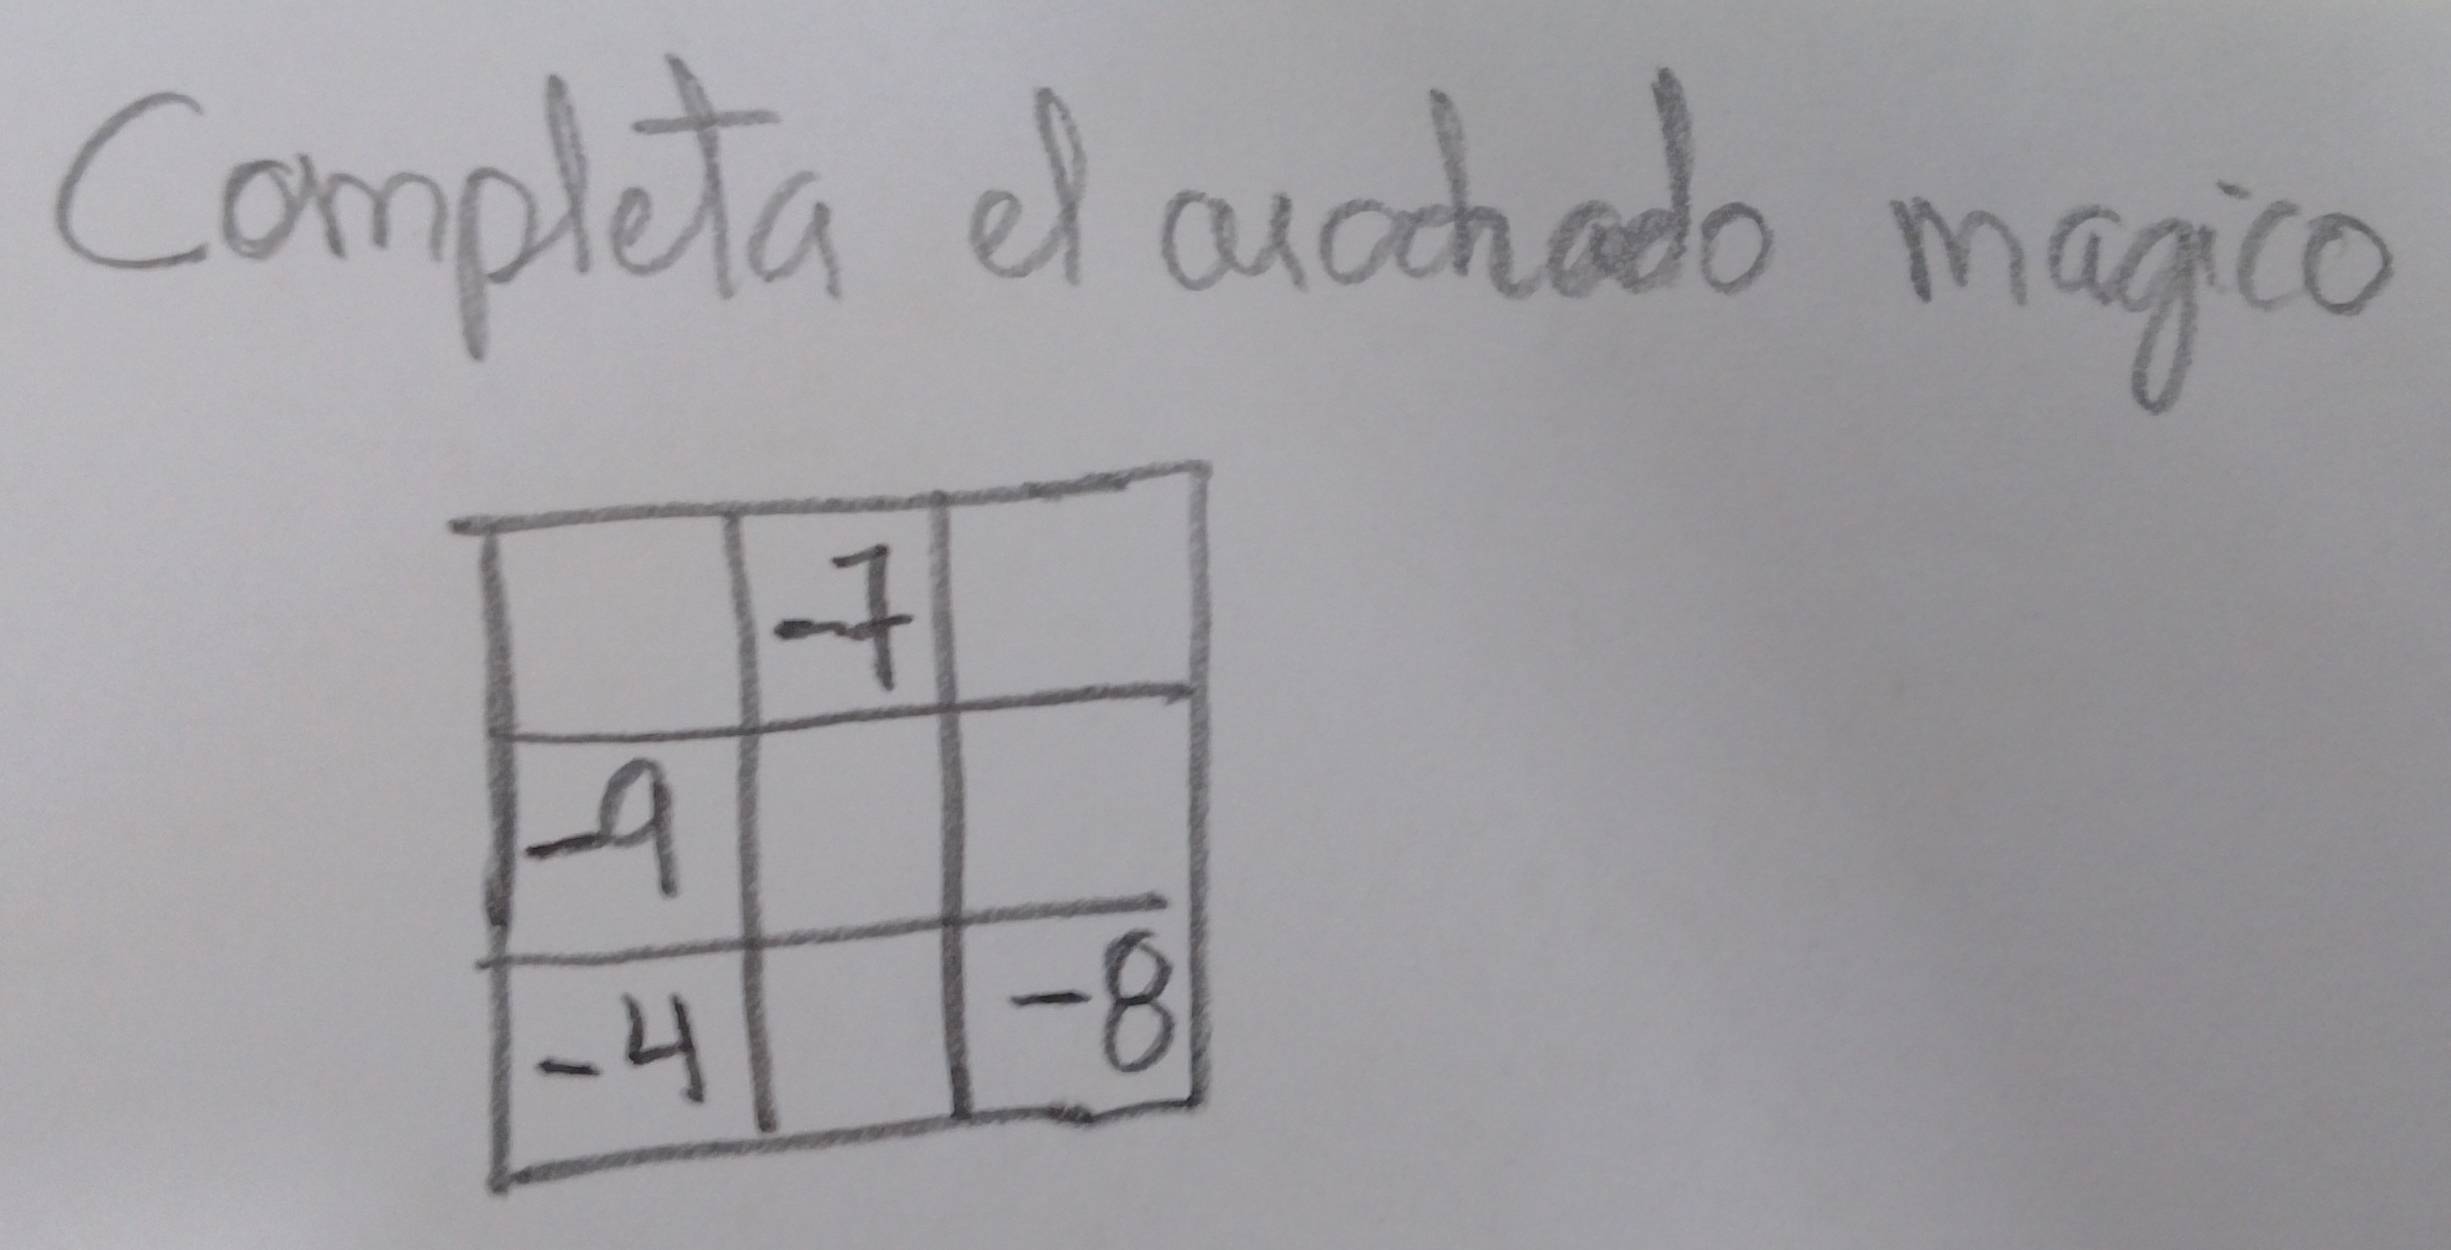 Completa el cuadrado magico
-7
-9
-4 -8